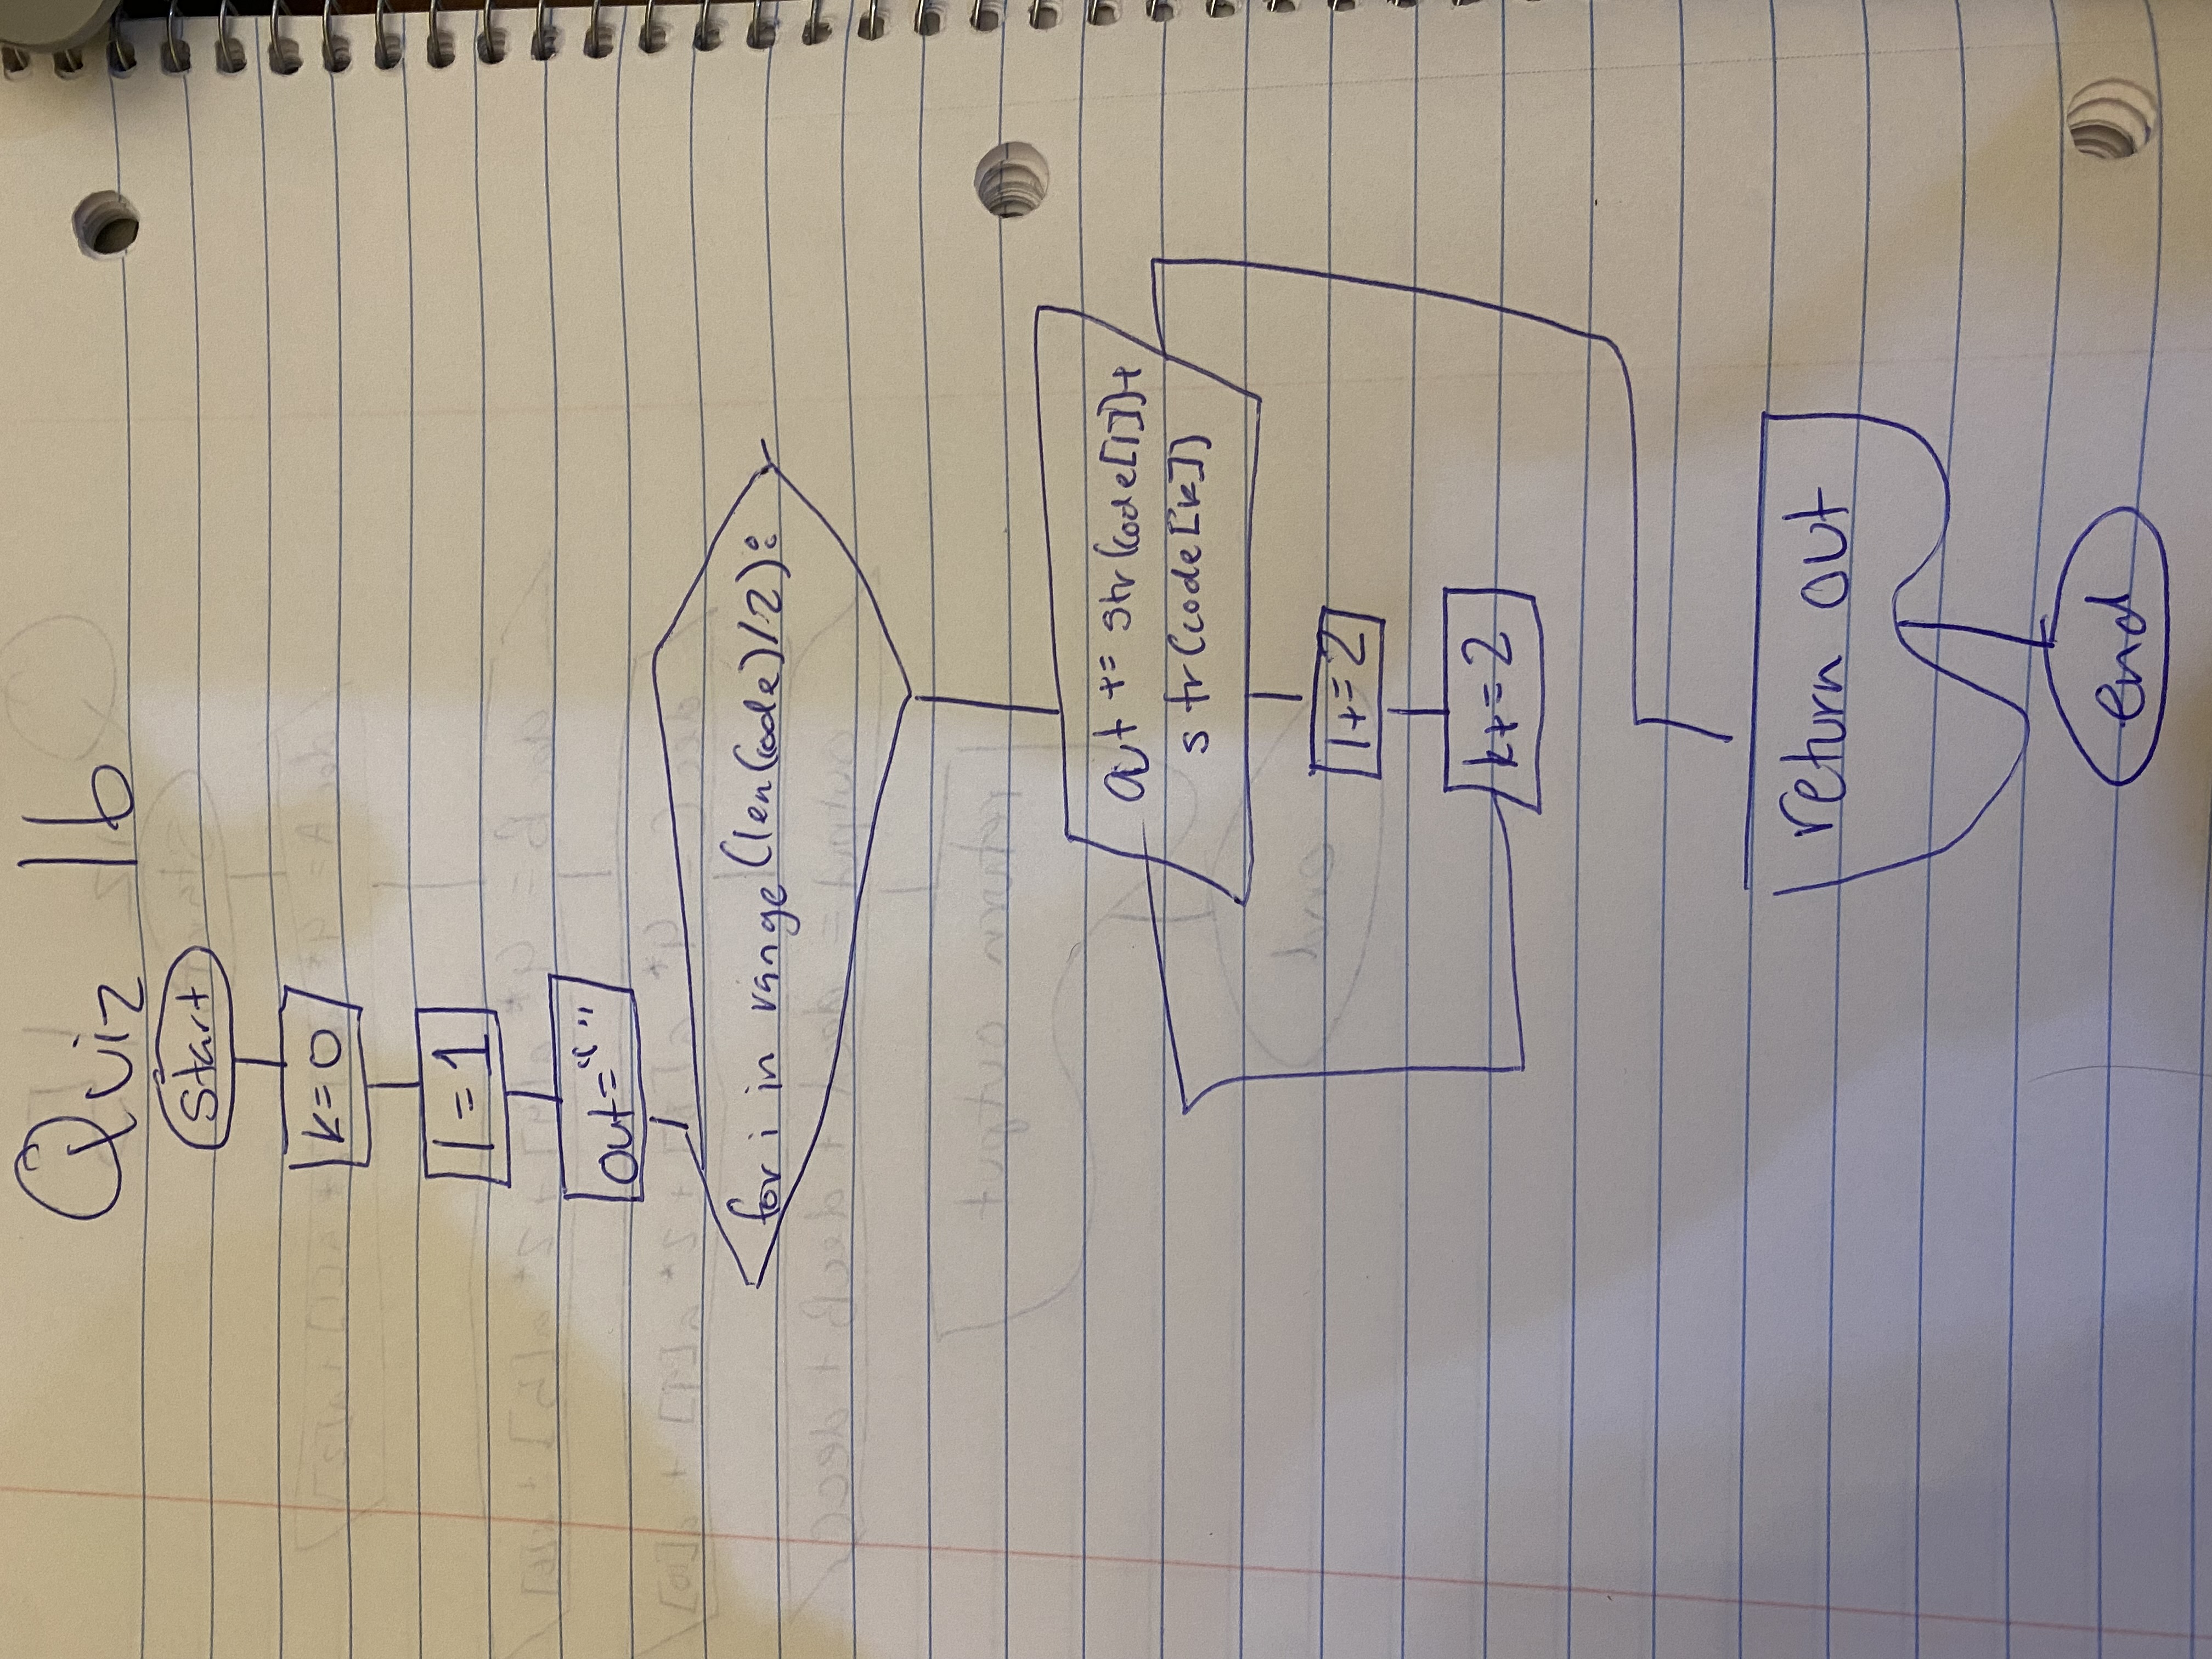 Quiz 16
start
k=0
l=1
out=“ ”
for i in range (len(code)/2):
out += str(code[l])+
str(code[k])
l+=2
k+=2
return out
end